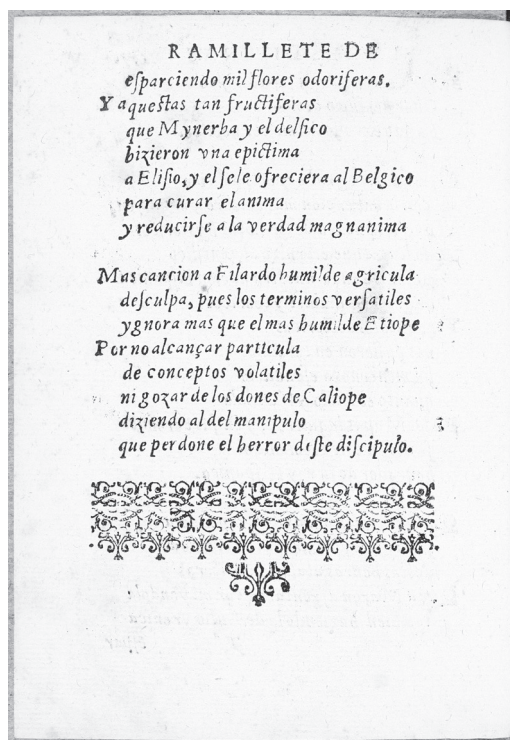 RAMILLETE DE
eſparciendo mil flores odoriferas.
Y aqueſtas tan fructiferas
que Mynerba y el delfico
hizieron vna epictima
a Eliſio, y el ſele ofreciera al Belgico
para curar el anima
y reducirſe a la verdad magnanima
Mas cancion a Filardo humilde agricula
deſculpa, pues los terminos verſatiles
ygnora mas que el mas humilde Etiope
Por no alcançar particula
de conceptos volatiles
ni gozar de los dones de Caliope
diziendo al del manipulo
que perdone el herror diſte diſcipulo.